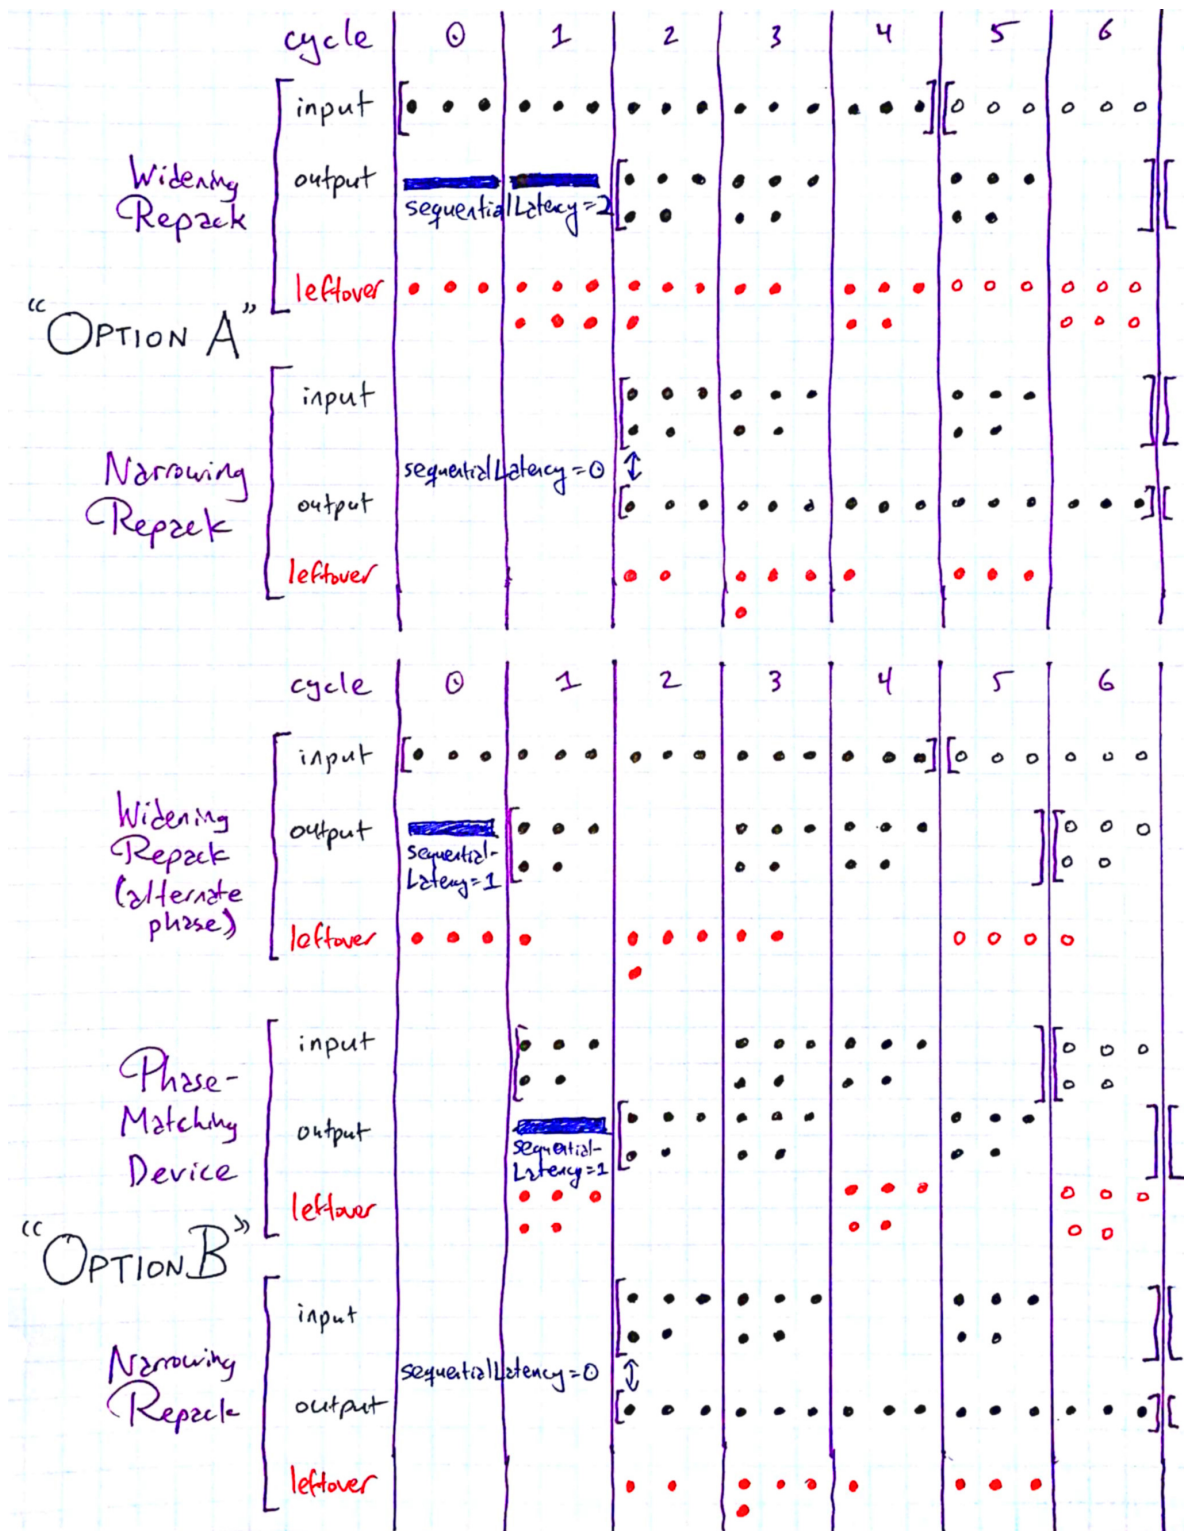 cycle 0 1 2 3 4 5 6
input
Widening
Repack
output
sequentialLatency=2
leftover
"OPTION A"
input
Narrowing
Repack
sequentialLatency=0
output
leftover
cycle 0 1 2 3 4 5 6
input
Widening
Repack
(alternate
phase)
output
sequential-
Latency=1
leftover
input
Phase-
Matching
Device
output
sequential-
Latency=1
leftover
"OPTION B"
input
Narrowing
Repack
sequentialLatency=0
output
leftover